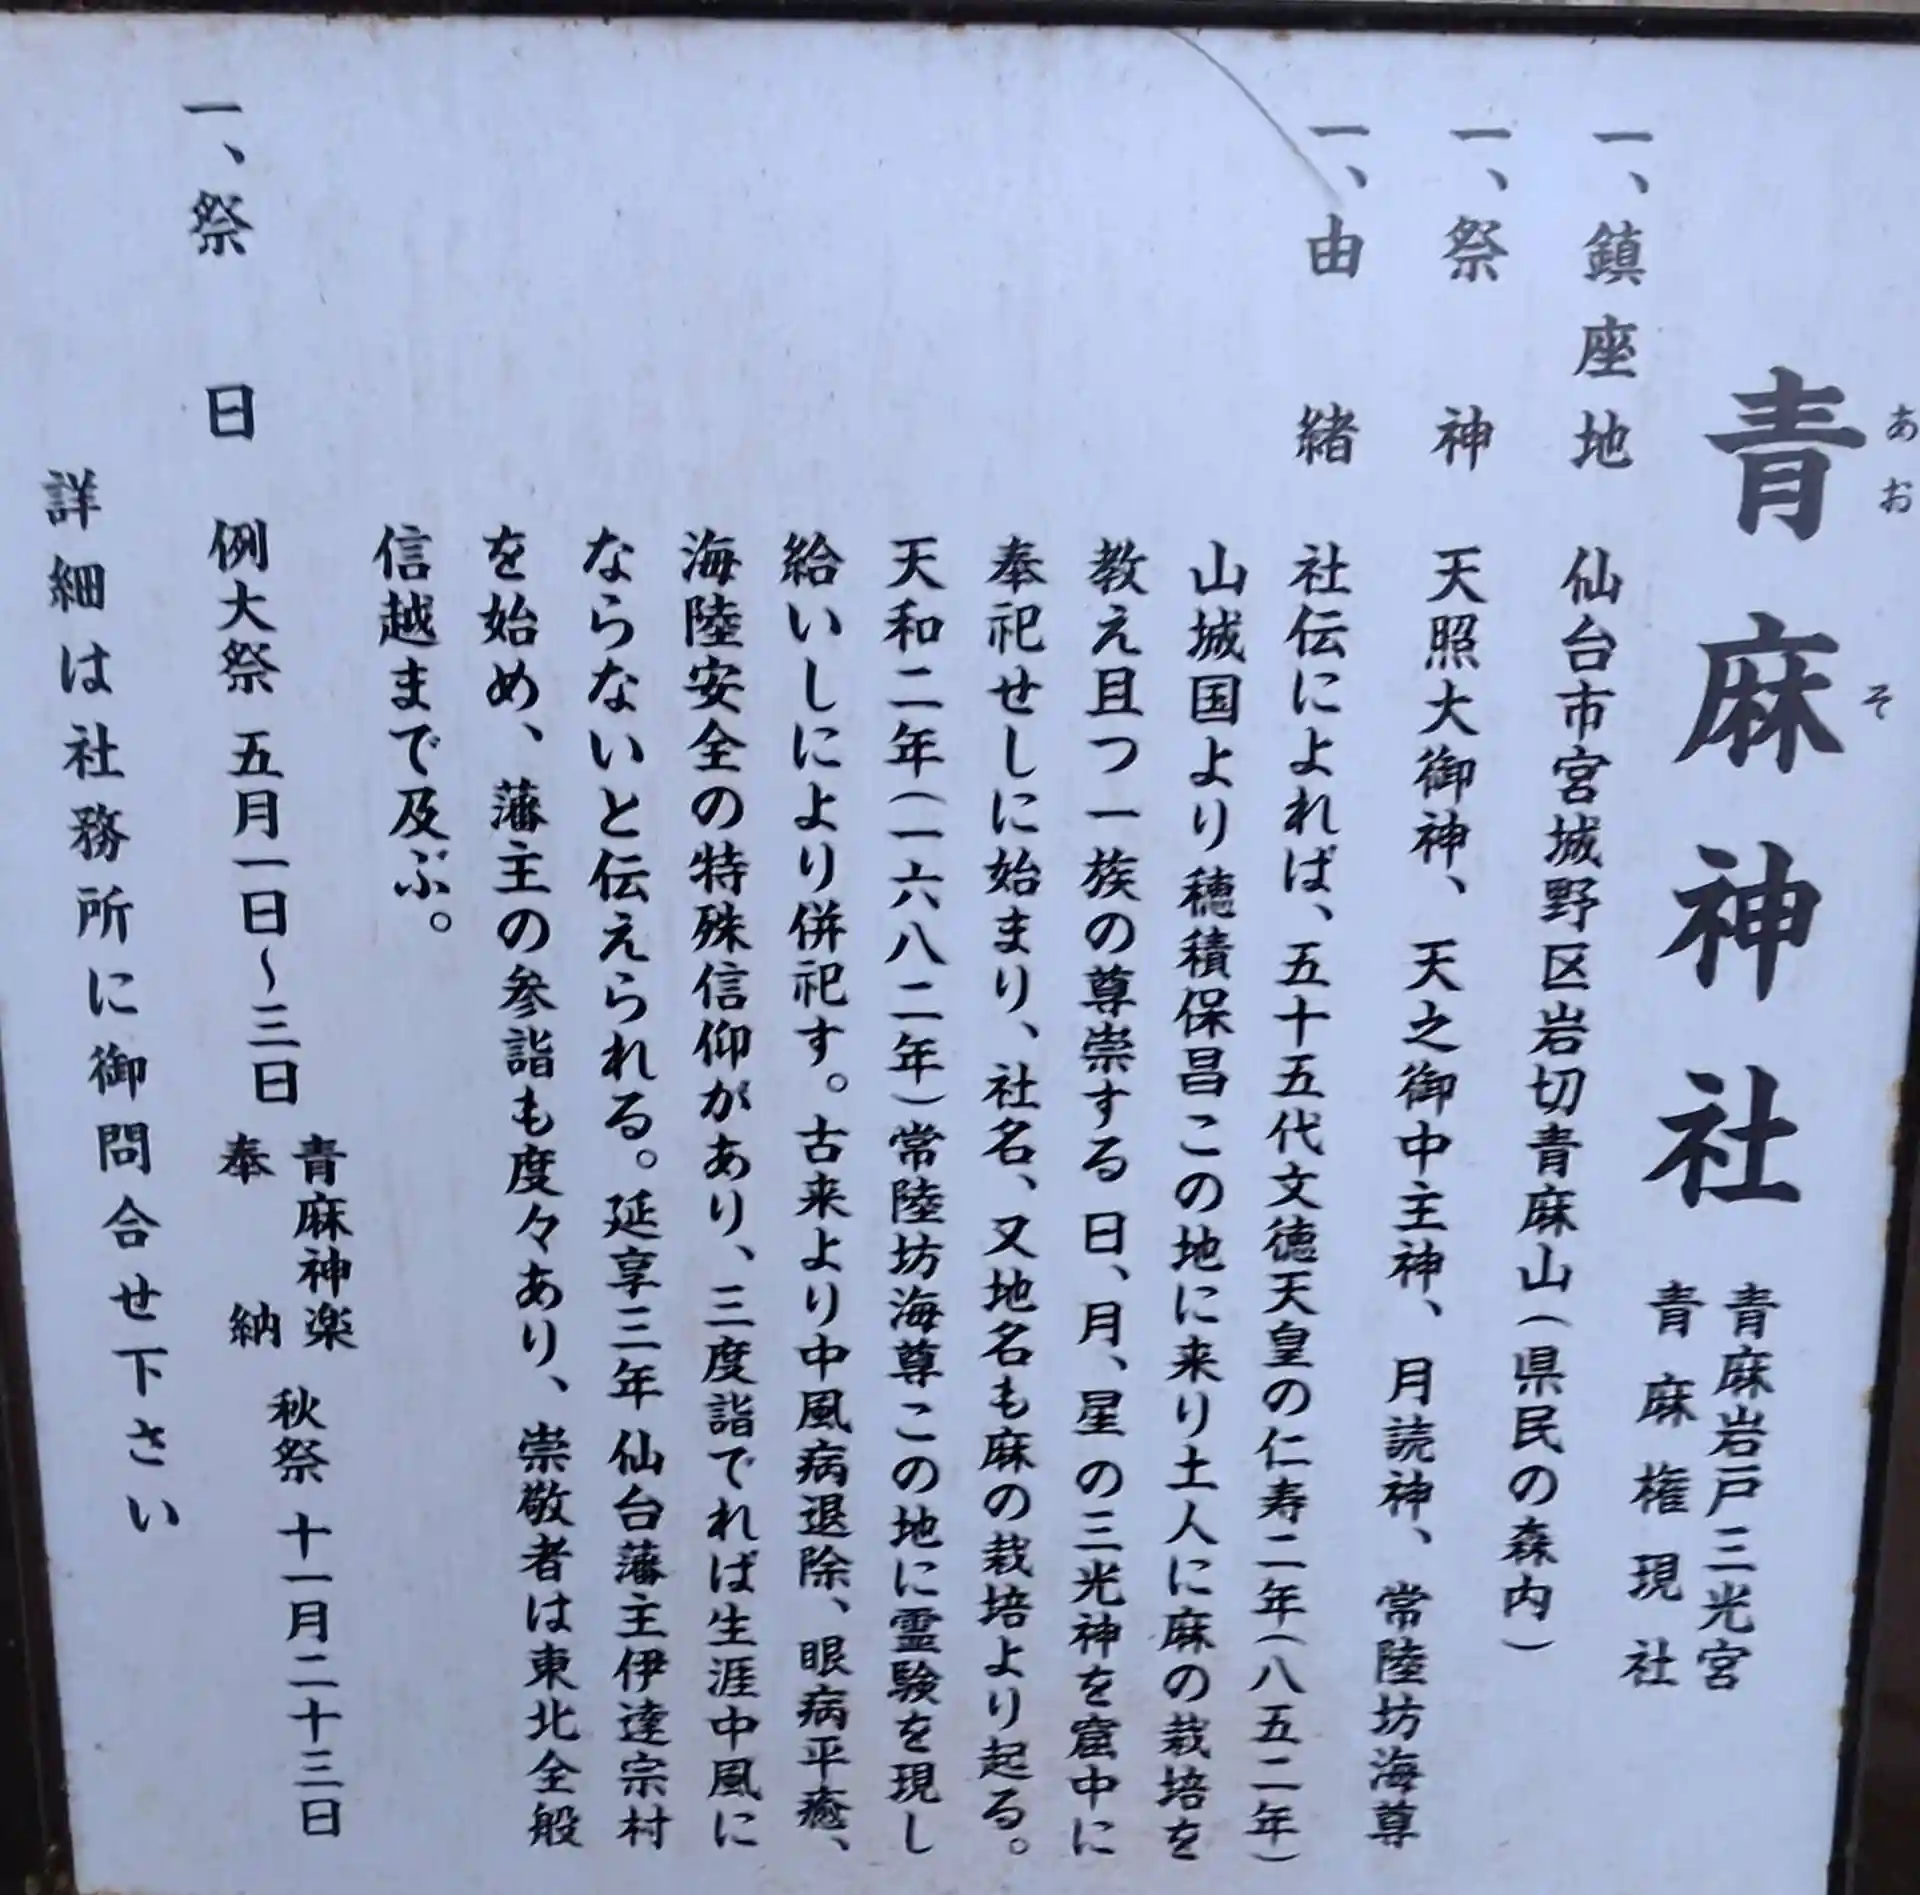 青麻神社
あおそ
青麻岩戸三光宮
青麻権現社
一、鎮座地 仙台市宮城野区岩切青麻山(県民の森内)
一、祭神 天照大御神、天之御中主神、月読神、常陸坊海尊
一、由緒 社伝によれば、五十五代文徳天皇の仁寿二年(八五二年)
山城国より穂積保昌この地に来り土人に麻の栽培を
教え且つ一族の尊崇する日、月、星の三光神を窟中に
奉祀せしに始まり、社名、又地名も麻の栽培より起る。
天和二年(一六八二年)常陸坊海尊この地に霊験を現し
給いしにより併祀す。古来より中風病退除、眼病平癒、
海陸安全の特殊信仰があり、三度詣でれば生涯中風に
ならないと伝えられる。延享三年仙台藩主伊達宗村
を始め、藩主の参詣も度々あり、崇敬者は東北全般
信越まで及ぶ。
一、祭日 例大祭 五月一日~三日 青麻神楽奉納 秋祭 十一月二十三日
詳細は社務所に御問合せ下さい